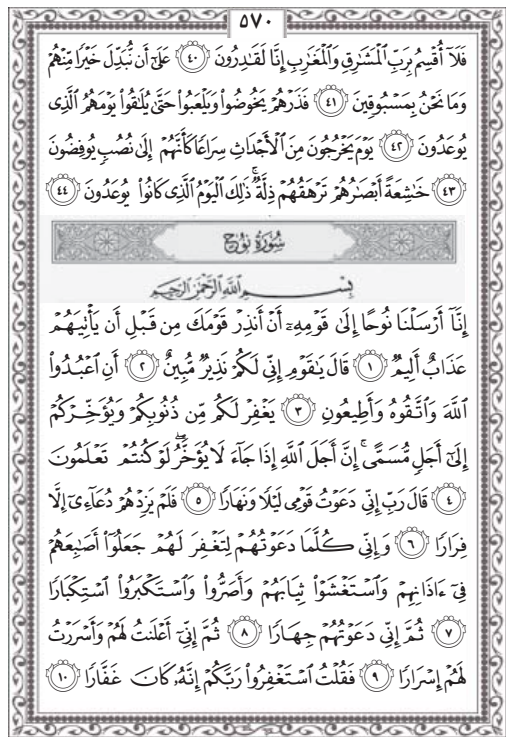 ٥٧٠
فَلَآ أُقْسِمُ بِرَبِّ ٱلْمَشَٰرِقِ وَٱلْمَغَٰرِبِ إِنَّا لَقَٰدِرُونَ ٤٠ عَلَىٰٓ أَن نُّبَدِّلَ خَيْرًا مِّنْهُمْ
وَمَا نَحْنُ بِمَسْبُوقِينَ ٤١ فَذَرْهُمْ يَخُوضُوا۟ وَيَلْعَبُوا۟ حَتَّىٰ يُلَٰقُوا۟ يَوْمَهُمُ ٱلَّذِى
يُوعَدُونَ ٤٢ يَوْمَ يَخْرُجُونَ مِنَ ٱلْأَجْدَاثِ سِرَاعًا كَأَنَّهُمْ إِلَىٰ نُصُبٍ يُوفِضُونَ
٤٣ خَٰشِعَةً أَبْصَٰرُهُمْ تَرْهَقُهُمْ ذِلَّةٌ ۚ ذَٰلِكَ ٱلْيَوْمُ ٱلَّذِى كَانُوا۟ يُوعَدُونَ ٤٤
سُورَةُ نُوحٍ
بِسْمِ ٱللَّهِ ٱلرَّحْمَٰنِ ٱلرَّحِيمِ
إِنَّآ أَرْسَلْنَا نُوحًا إِلَىٰ قَوْمِهِۦٓ أَنْ أَنذِرْ قَوْمَكَ مِن قَبْلِ أَن يَأْتِيَهُمْ
عَذَابٌ أَلِيمٌ ١ قَالَ يَٰقَوْمِ إِنِّى لَكُمْ نَذِيرٌ مُّبِينٌ ٢ أَنِ ٱعْبُدُوا۟
ٱللَّهَ وَٱتَّقُوهُ وَأَطِيعُونِ ٣ يَغْفِرْ لَكُم مِّن ذُنُوبِكُمْ وَيُؤَخِّرْكُمْ
إِلَىٰٓ أَجَلٍ مُّسَمًّى ۚ إِنَّ أَجَلَ ٱللَّهِ إِذَا جَآءَ لَا يُؤَخَّرُ ۖ لَوْ كُنتُمْ تَعْلَمُونَ
٤ قَالَ رَبِّ إِنِّى دَعَوْتُ قَوْمِى لَيْلًا وَنَهَارًا ٥ فَلَمْ يَزِدْهُمْ دُعَآءِىٓ إِلَّا
فِرَارًا ٦ وَإِنِّى كُلَّمَا دَعَوْتُهُمْ لِتَغْفِرَ لَهُمْ جَعَلُوٓا۟ أَصَٰبِعَهُمْ
فِىٓ ءَاذَانِهِمْ وَٱسْتَغْشَوْا۟ ثِيَابَهُمْ وَأَصَرُّوا۟ وَٱسْتَكْبَرُوا۟ ٱسْتِكْبَارًا
٧ ثُمَّ إِنِّى دَعَوْتُهُمْ جِهَارًا ٨ ثُمَّ إِنِّىٓ أَعْلَنتُ لَهُمْ وَأَسْرَرْتُ
لَهُمْ إِسْرَارًا ٩ فَقُلْتُ ٱسْتَغْفِرُوا۟ رَبَّكُمْ إِنَّهُۥ كَانَ غَفَّارًا ١٠